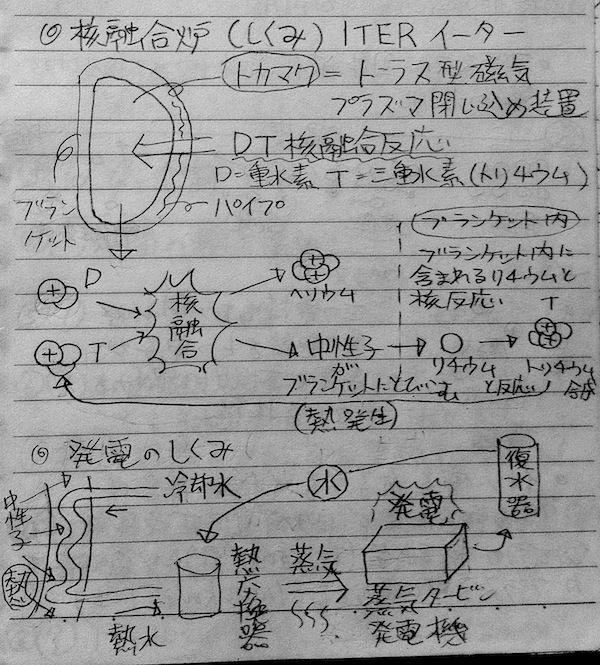 ◎ 核融合炉 (しくみ) ITER イーター
トカマク = トーラス型磁気
プラズマ閉じ込め装置
DT核融合反応
D=重水素 T=三重水素(トリチウム)
ブランケット
パイプ
ブランケット内
ブランケット内に
含まれるリチウムと
核反応 T
D
T
核融合
ヘリウム
中性子
が
ブランケットにとびこむ
リチウム
と反応
トリチウム
(熱発生)
◎ 発電のしくみ
中性子
熱
冷却水
熱水
水
熱交換器
蒸気
発電
蒸気タービン
発電機
復水器